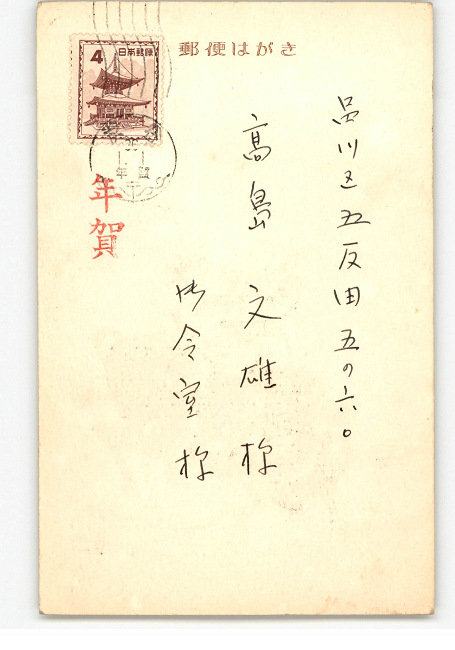 郵便はがき
4 日本郵便
年賀
年賀
品川区五反田五の六〇
高島文雄様
御令室様